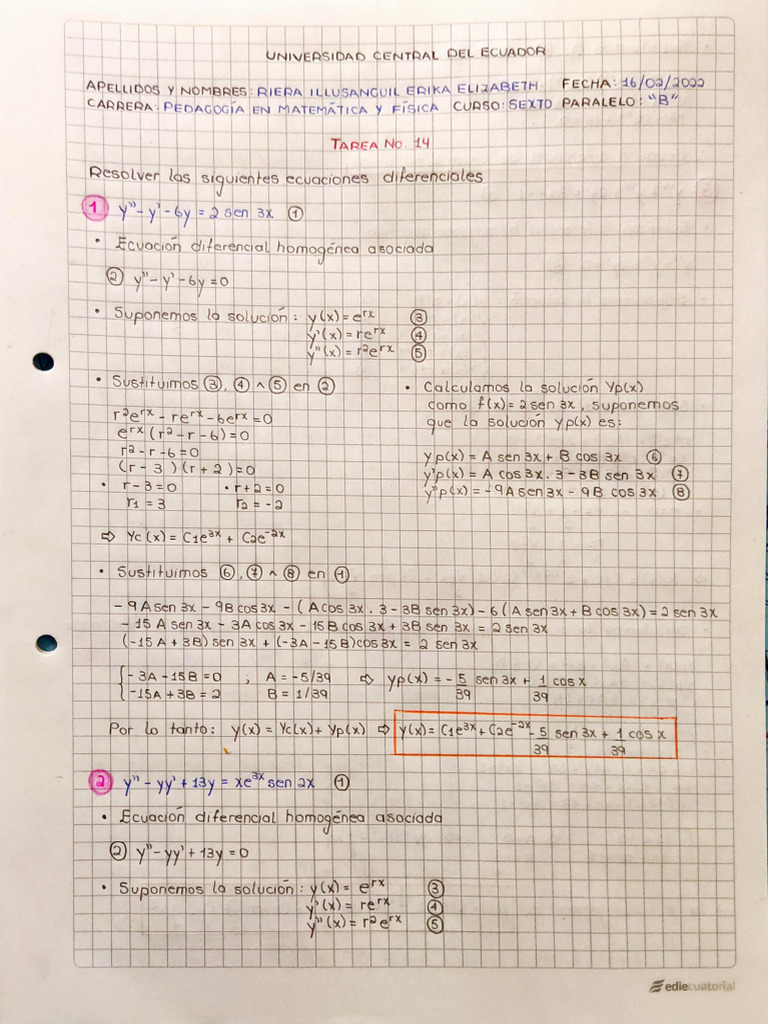 UNIVERSIDAD CENTRAL DEL ECUADOR
APELLIDOS Y NOMBRES: RIERA ILLUSANGUIL ERIKA ELIZABETH FECHA: 16/02/2022
CARRERA: PEDAGOGÍA EN MATEMÁTICA Y FÍSICA CURSO: SEXTO PARALELO: "B"
TAREA No. 14
Resolver las siguientes ecuaciones diferenciales
1 y'' - y' - 6y = 2 sen 3x ①
• Ecuación diferencial homogénea asociada
② y'' - y' - 6y = 0
• Suponemos la solución: y(x) = e^rx ③
y'(x) = re^rx ④
y''(x) = r²e^rx ⑤
• Sustituimos ③, ④ ^ ⑤ en ②
r²e^rx - re^rx - 6e^rx = 0
e^rx (r² - r - 6) = 0
r² - r - 6 = 0
(r - 3)(r + 2) = 0
• r - 3 = 0 • r + 2 = 0
r1 = 3 r2 = -2
⇨ Yc(x) = C1e^3x + C2e^-2x
• Calculamos la solución Yp(x)
como f(x) = 2 sen 3x, suponemos
que la solución Yp(x) es:
Yp(x) = A sen 3x + B cos 3x ⑥
y'p(x) = A cos 3x . 3 - 3B sen 3x ⑦
y''p(x) = -9A sen 3x - 9B cos 3x ⑧
• Sustituimos ⑥, ⑦ ^ ⑧ en ①
- 9A sen 3x - 9B cos 3x - (A cos 3x . 3 - 3B sen 3x) - 6(A sen 3x + B cos 3x) = 2 sen 3x
- 15 A sen 3x - 3A cos 3x - 15B cos 3x + 3B sen 3x = 2 sen 3x
(-15A + 3B) sen 3x + (-3A - 15B) cos 3x = 2 sen 3x
{ - 3A - 15B = 0 ; A = -5/39 ⇨ Yp(x) = - 5/39 sen 3x + 1/39 cos x
{ -15A + 3B = 2 B = 1/39
Por lo tanto: y(x) = Yc(x) + Yp(x) ⇨ y(x) = C1e^3x + C2e^-2x - 5/39 sen 3x + 1/39 cos x
2 y'' - yy' + 13y = xe^3x sen 2x ①
• Ecuación diferencial homogénea asociada
② y'' - yy' + 13y = 0
• Suponemos la solución: y(x) = e^rx ③
y'(x) = re^rx ④
y''(x) = r²e^rx ⑤
ediecuatorial